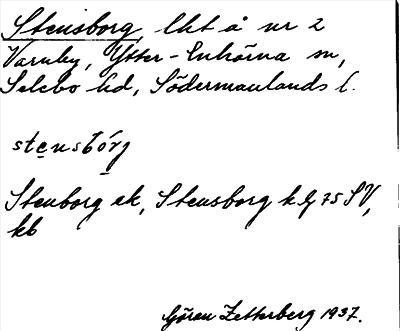 Stensborg, lht å nr 2
Varnby, Ytter-Enhörna sn,
Selebo hd, Södermanlands l.
stensbórg
Stenborg ek, Stensborg k G 75 SV,
kb
Göran Zetterberg 1937.